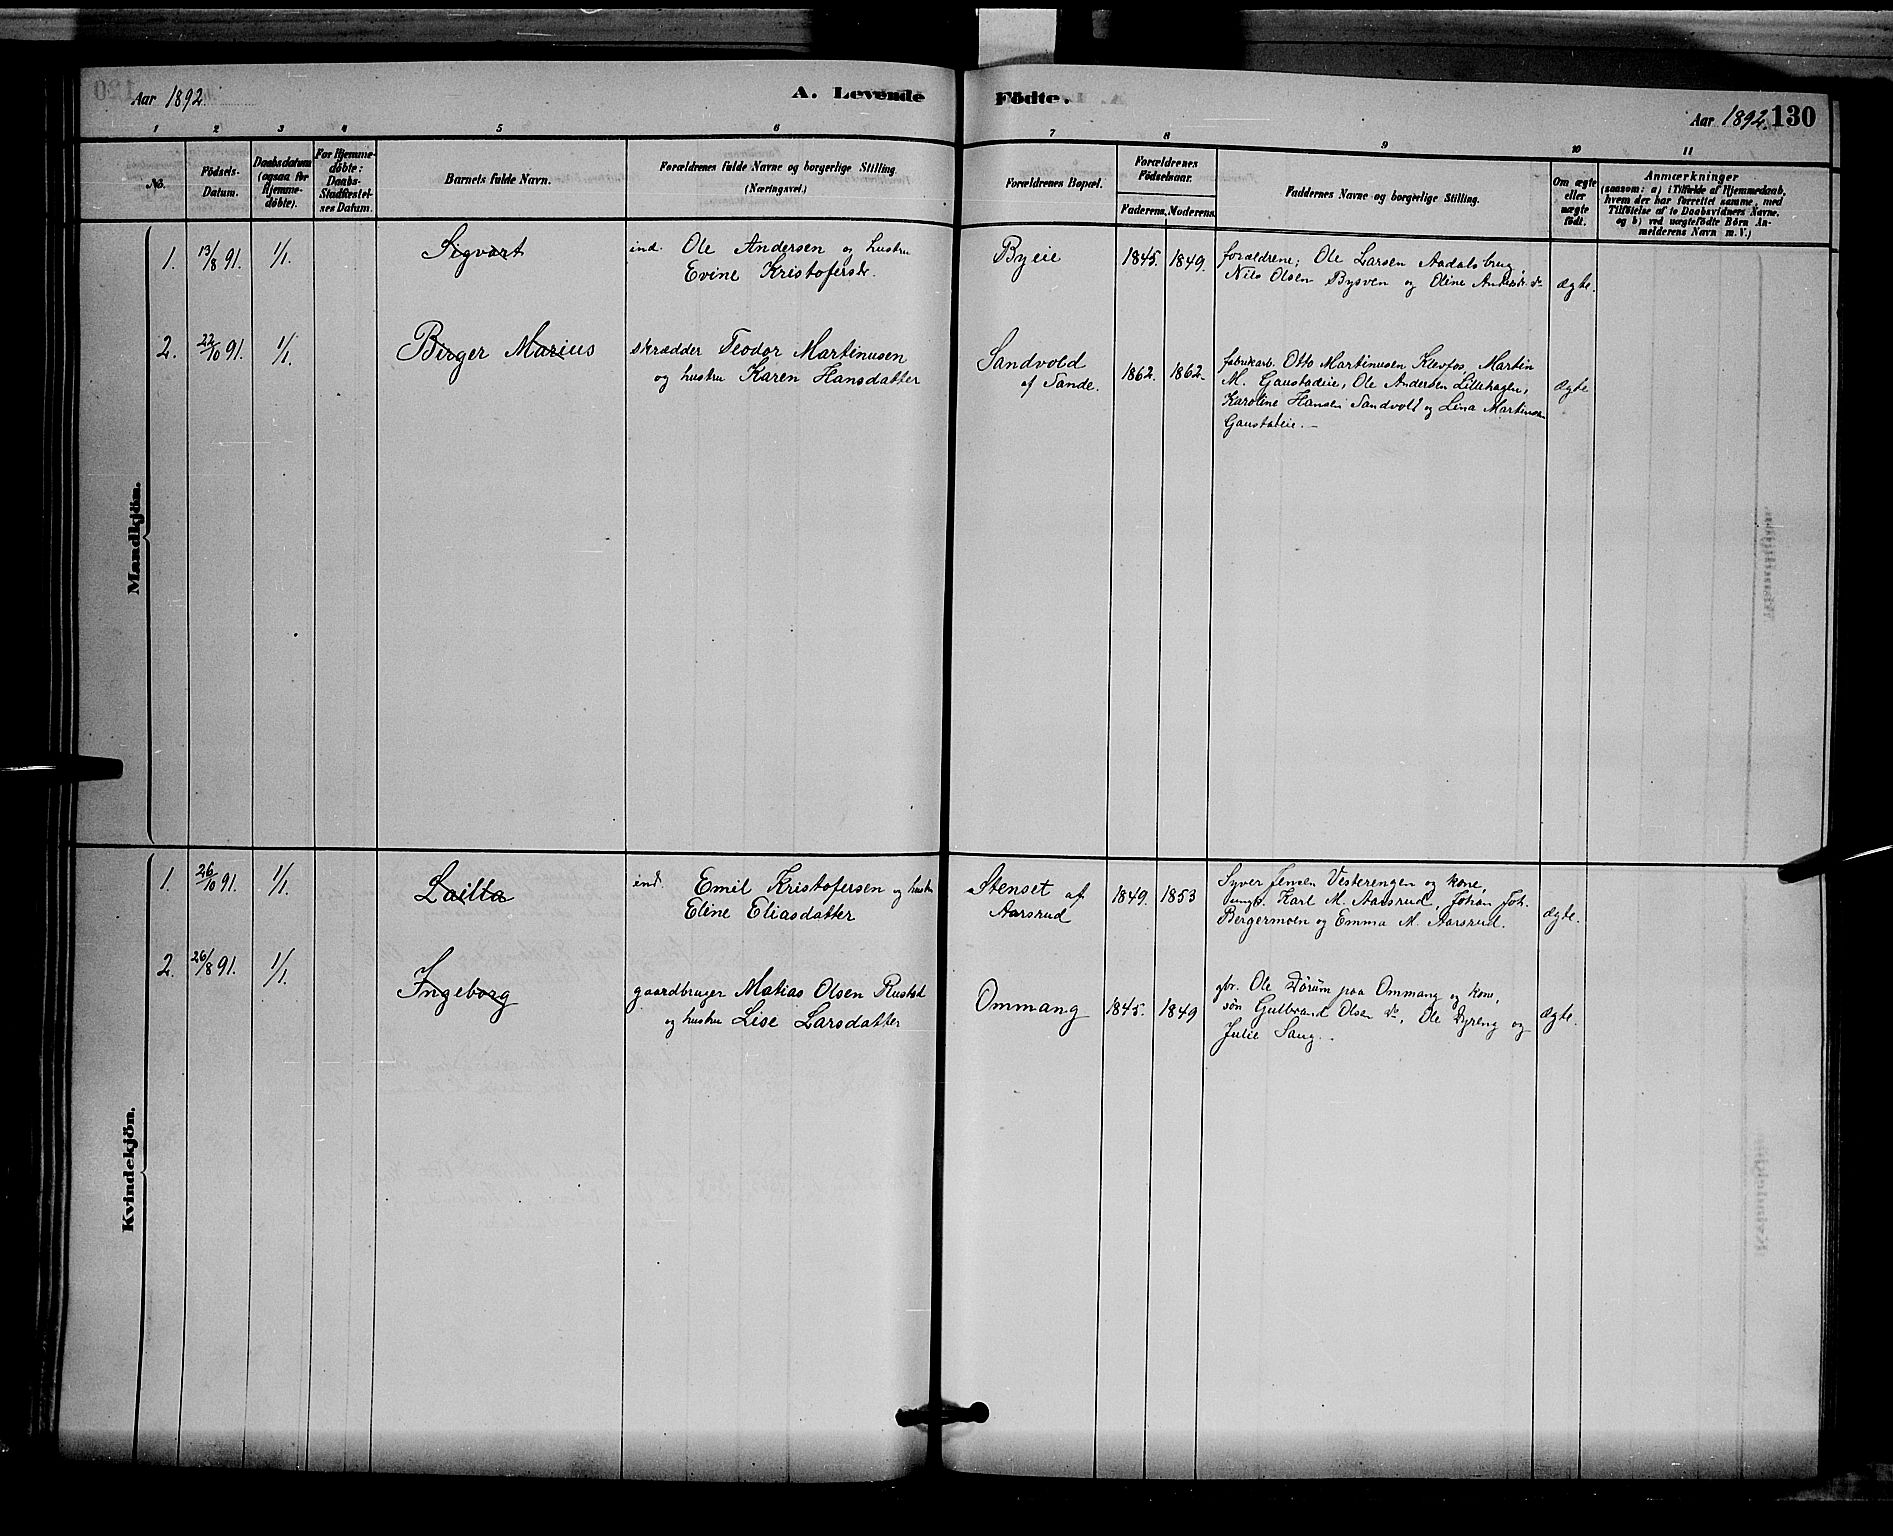 Aar 1892.
A. Levende Födte.
Aar 1892. 130
1 2 3 4 5 6 7 8 9 10 11
No.
Födsels-Datum.
Daabsdatum (ogsaa for Hjemme-döbte).
For Hjemme-döbte: Daabs-Stadfæstel-ses Datum.
Barnets fulde Navn.
Forældrenes fulde Navne og borgerlige Stilling (Næringsvei.)
Forældrenes Bopæl.
Forældrenes Födselsaar.
Faderens. Moderens.
Faddernes Navne og borgerlige Stilling.
Om ægte eller uægte født.
Anmærkninger
(saasom: a) i Tilfælde af Hjemmedaab,
hvem der har forrettet samme, med
Tilføielse af to Daabsvidners Navne.
og b) ved uægtefödte Börn An-
melderens Navn m. V.)
Mandkjön.
1. 13/8 91. 1/1. Sigvart
ind. Ole Andersen og hustru
Evine Kristofersdr.
Byeie 1845. 1849.
forældrene; Ole Larsen Aadalsbrug
Nils Olsen Bysven og Oline Andersdr. do
ægte.
2. 22/10 91. 1/1. Birger Marius
skrædder Teodor Martinusen
og hustru Karen Hansdatter
Sandvold
af Sande.
1862. 1862.
fabrikarb. Otto Martinusen Klevfos, Martin
M. Gaustadeie, Ole Andersen Lillehagen,
Karoline Hansen Sandvold og Lina Martinsen
Gaustadeie.
Ægte
Kvindekjön.
1. 26/10 91. 1/1. Lailla
ind. Emil Kristofersen og hustru
Eline Eliasdatter
Stenset af
Aarsrud
1849. 1853
Syver Jensen Vesterengen og kone,
ungk. Karl M. Aarsrud, Johan Joh.
Bergermoen og Emma M. Aarsrud.
ægte.
2. 26/8 91. 1/1. Ingeborg
gaardbruger Matias Olsen Rustad
og hustru Lise Larsdatter
Ommang 1845. 1849
gbr. Ole Dørum paa Ommang og kone,
søn Gulbrand Olsen do, Ole Dyreng og
Julie Saug.
ægte.